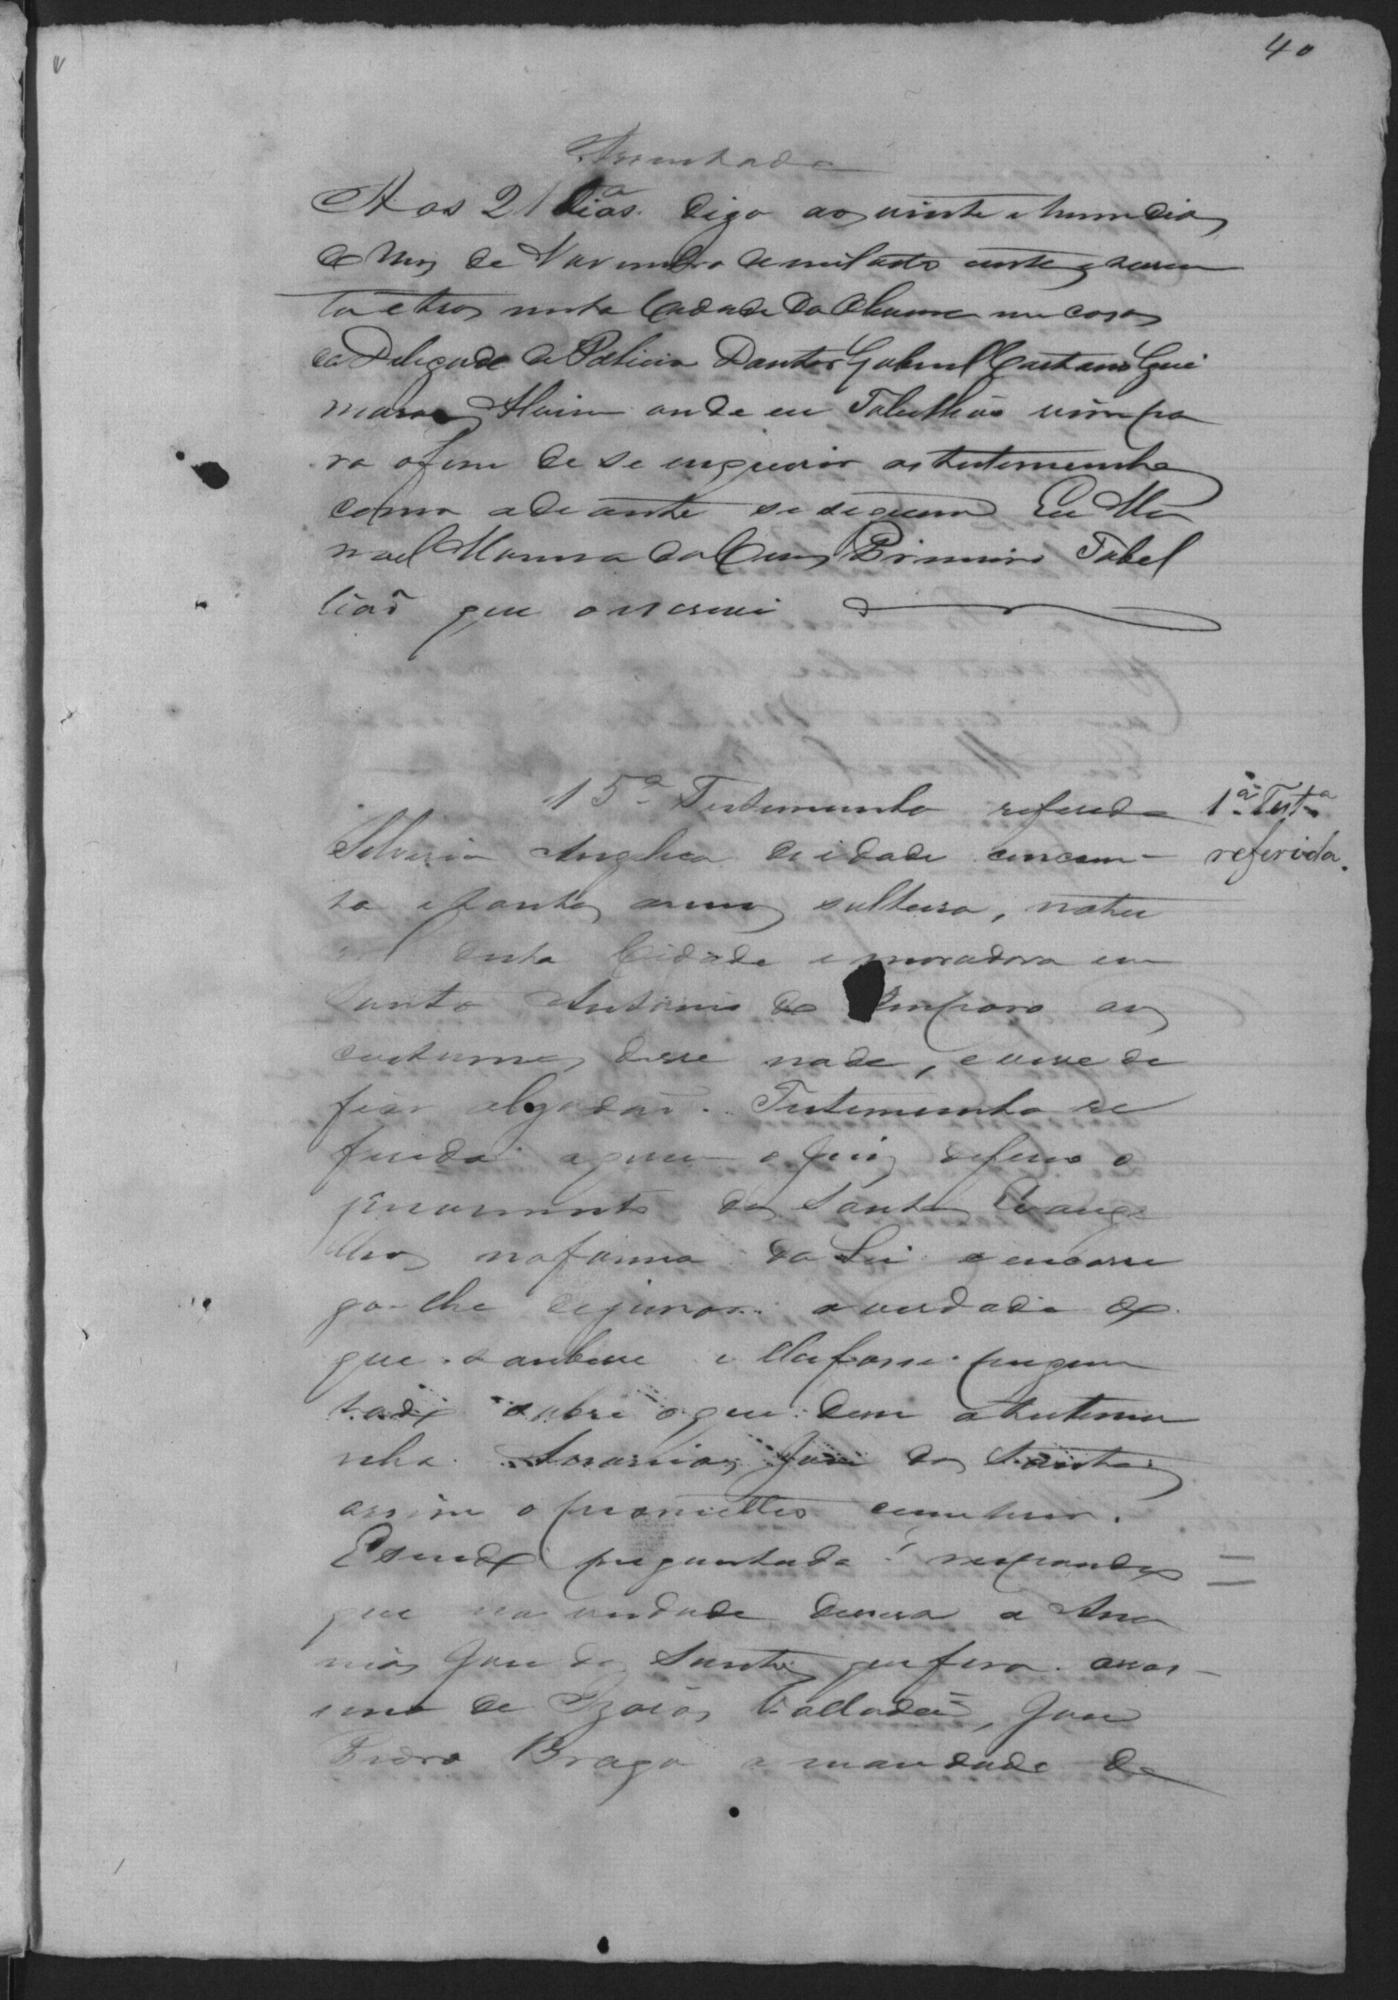 40
Assentada
Aos 21 dias digo aos vinte e hum dias
do Mez de Novembro de mil oito centos e secen
ta e tres nesta Cidade da
do Delegado de Policia Doutor Gabriel Caetano Gui
maraes Alvim onde eu Tabelliaõ vim pa
ra o fim de se inquirir as testemunhas
como adeante se seguem Eu Ma
noel da Cruz Primeiro Tabel
liaõ que o escrevi
15ª Testemunha referida
1ª Testª
referida.
Silveria Angelica de idade cincoen-
ta e tantos annos solteira, natu
ral desta Cidade e moradora em
Santo Antonio do Amparo aos
custumes disse nada, e vive de
fiar algodaõ. Testemunha re
ferida a quem o Juiz deferio o
juramento dos Santos Evange
lhos na forma da Lei e encarre
gou-lhe de jurar a verdade do
que soubesse e lhe fosse pregun
tado sobre o que dem a testemu
nha Jose dos Santos
assim o prometteo cumprir.
E sendo preguntada! respondeo
que na verdade dissera a Ana
nias Jose dos Santos que fora assas-
sino de Izaias Valladaõ, Jose
Pedro Braga a mandado de